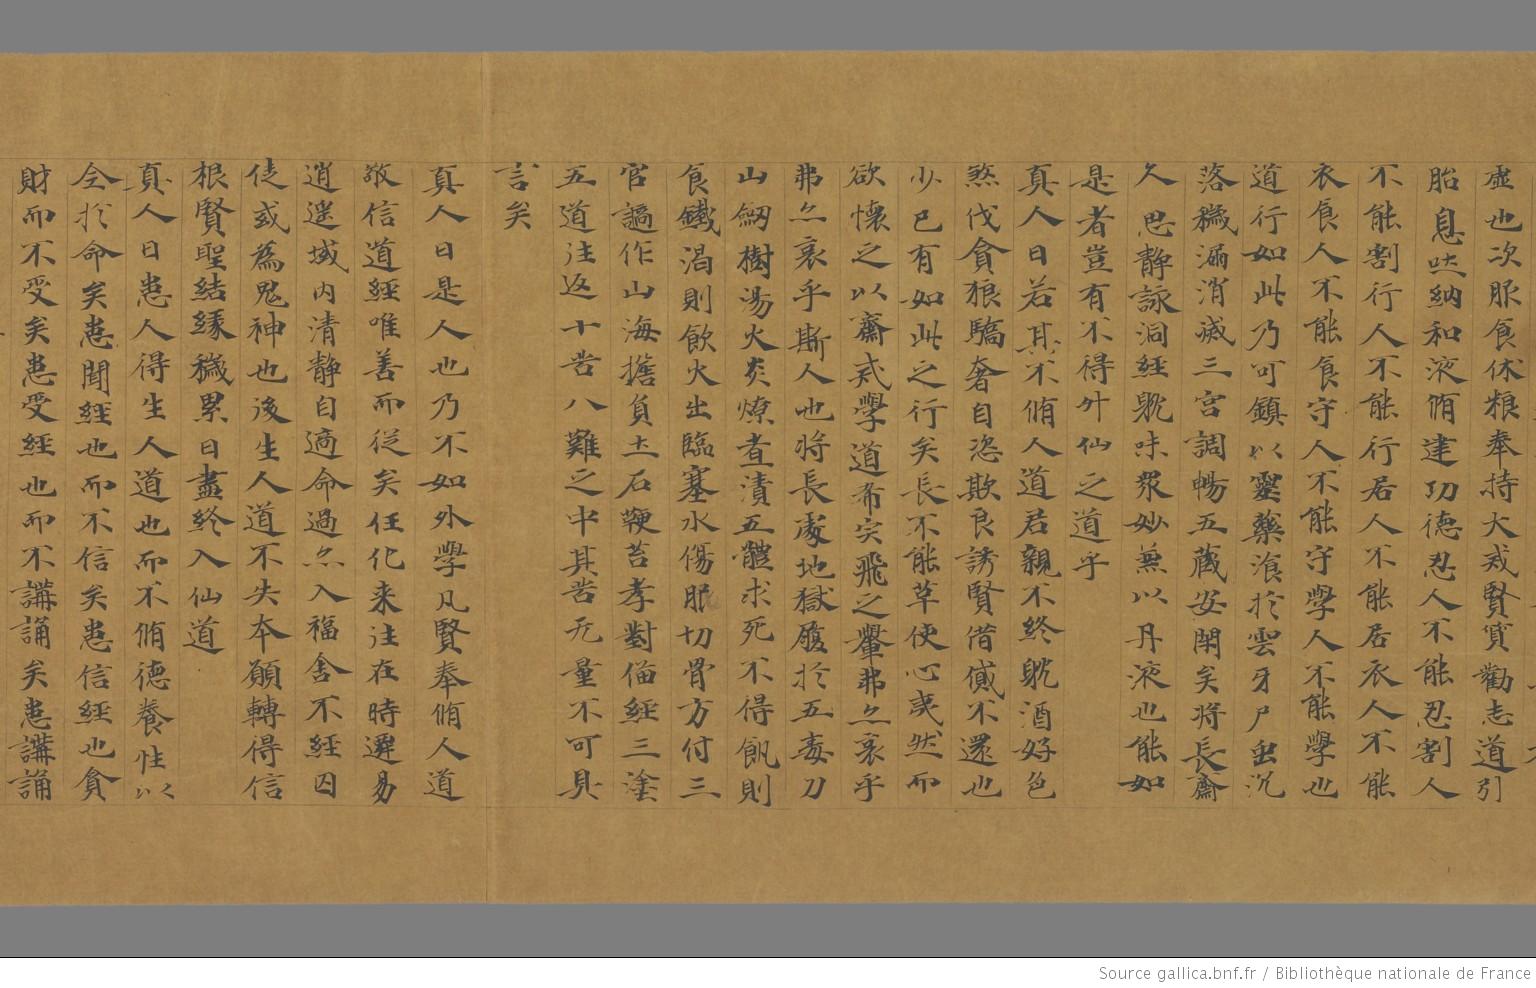 虛也次服食休粮奉持大戒賢實勸志道引
胎息吐納和液脩建功德忍人不能忍割人
不能割行人不能行居人不能居衣人不能
衣食人不能食守人不能守學人不能學也
道行如此乃可鎮以靈藥湌於雲牙尸虫沉
落穢漏消滅三宮調暢五藏安閑矣將長齋
久思靜詠洞經躭味衆妙兼以丹液也能如
是者豈有不得升仙之道乎
真人曰若其不脩人道君親不終躭酒好色
煞伐貪狼驕奢自恣欺良誘賢借傶不還也
少已有如此之行矣長不能革使心夷然而
欲懷之以齋戒學道希宍飛之轝弗亦哀乎
弗亦哀乎斯人也將長處地獄履於五毒刀
山劒樹湯火炎燎煮漬五體求死不得飢則
食鐵渴則飲火出臨塞水傷眠切骨方付三
官謫作山海擔負土石鞭笞孝對備經三塗
五道往返十苦八難之中其苦无量不可具
言矣
真人曰是人也乃不如外學凡賢奉脩人道
敬信道經唯善而從矣任化来往在時遷易
逍遥域内清靜自適命過亦入福舍不經囚
徒或為鬼神也後生人道不失夲願轉得信
根賢聖結緣穢累日盡終入仙道
真人曰患人得生人道也而不脩德養性以
全於命矣患聞經也而不信矣患信經也貪
財而不受矣患受經也而不講誦矣患講誦
Source gallica.bnf.fr / Bibliothèque nationale de France